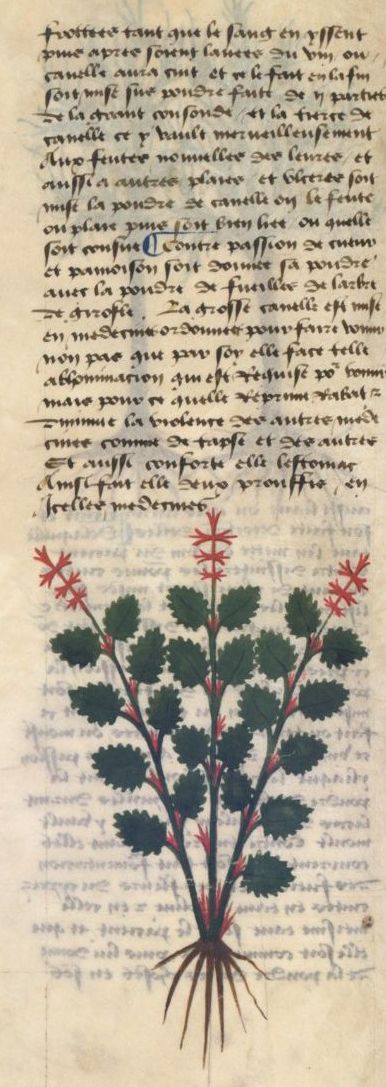 frottees tant que le sang en yssent
puis apres soient lavees du vin ou
canelle aura cuit et ce le fait en la fin
soit mise sus pouldre faite de ii parties
de la grant consoude et la tierce de
canelle ce y vault merveilleusement
Aux fentes nouvelles des levres et
aussi a autres plaies et ulceres soit
mise la pouldre de canelle ou le fente
ou plaie puis soit bien liee ou quelle
soit consue Contre passion de cueur
et pamoison soit donnee sa pouldre
avec la pouldre de fueilles de larbre
de girofle. La grosse canelle est mise
en medecine ordonnee pour faire vomir
non pas que par soy elle face telle
abhominacion qui est requise po vomir
mais pour ce quelle reprime rabat z
diminue la violence des autres mede
cines comme de tapse et des autres
Et aussi conforte elle lestomac
Ainsi fait elle deux prouffis en
Icelles medecines